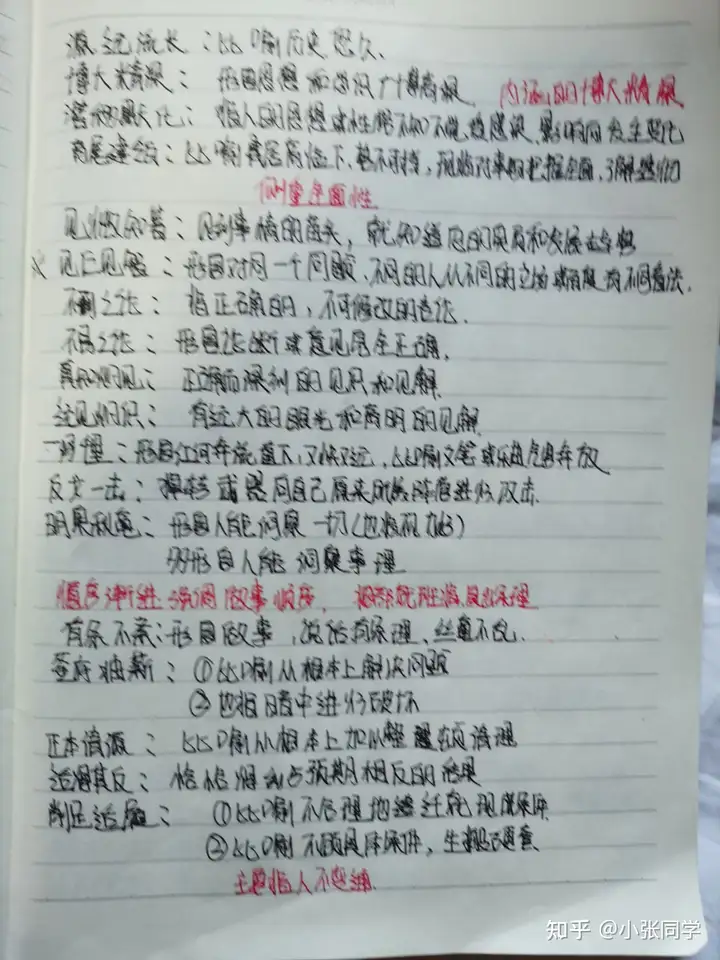 源远流长：比喻历史悠久、
博大精深：形容思想和学识广博高深 内涵的博大精深
潜移默化：指人的思想或性格不知不觉受感染、影响而发生变化
高屋建瓴：比喻居高临下、势不可挡，现指对事物把握全面，了解透彻
侧重全面性
见微知著：见到事情的苗头，就知道它的实质和发展
见仁见智：形容对同一个问题、不同的人从不同的立场或角度有不同看法.
不刊之论：指正确的，不可修改的言论.
不易之论：形容论断或意见完全正确.
真知灼见：正确而深刻的见识和见解.
远见卓识：有远大的眼光和高明的见解.
形容江河奔流直下，又快又远，比喻文笔或乐曲气势奔放
反戈一击：掉转武器向自己原来所属阵营进行攻击.
明察秋毫：形容人能洞察一切
形容人能洞察事理
循序渐进 强调做事顺序，
有条不紊：形容做事，说话有条理、丝毫不乱.
釜底抽薪：①比喻从根本上解决问题
②也指暗中进行破坏
正本清源：比喻从根本上加以整顿清理
适得其反：恰恰得到与预期相反的结果
削足适履：①比喻不合理地迁就现成条件
②比喻不顾具体条件，生搬硬套
主要指人不变通.
知乎 @小张同学